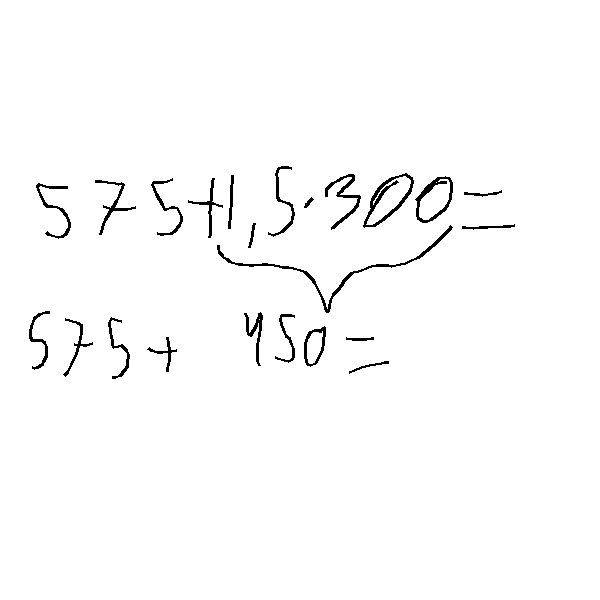 575+1,5·300=
575+ 450=